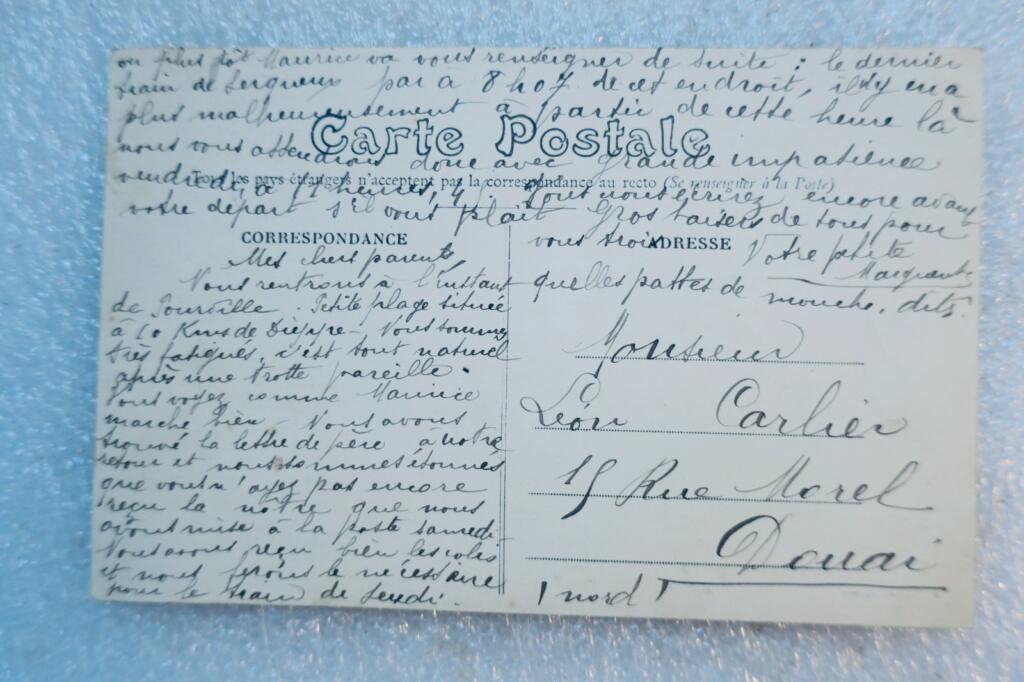 ou plus tôt Maurice va vous renseigner de suite : le dernier
train de Serqueux par a 8 h 07 de cet endroit, il n'y en a
plus malheureusement à partir de cette heure là
Carte Postale
nous vous attendrons donc avec grande impatience
Tous les pays étrangers n'acceptent pas la correspondance au recto (Se renseigner à la Poste)
vendredi, à heures, vous nous écrirez encore avant
votre départ s'il vous plaît Gros baisers de tous pour
vous trois Votre petite
Marguerite
quelles pattes de mouche, dites.
CORRESPONDANCE
Mes chers parents,
Nous rentrons à l'instant
de Pourville. Petite plage située
à 10 Kms de Dieppe - Nous sommes
très fatigués, c'est tout naturel
après une trotte pareille.
Vous voyez comme Maurice
marche bien - Nous avons
trouvé la lettre de père à notre
retour et nous sommes étonnés
que vous n'ayez pas encore
reçu la nôtre que nous
avons mise à la poste samedi -
Nous avons reçu bien les colis
et nous ferons le nécessaire
pour le train de
ADRESSE
Monsieur
Léon Carlier
15 Rue Morel
Douai
(nord)